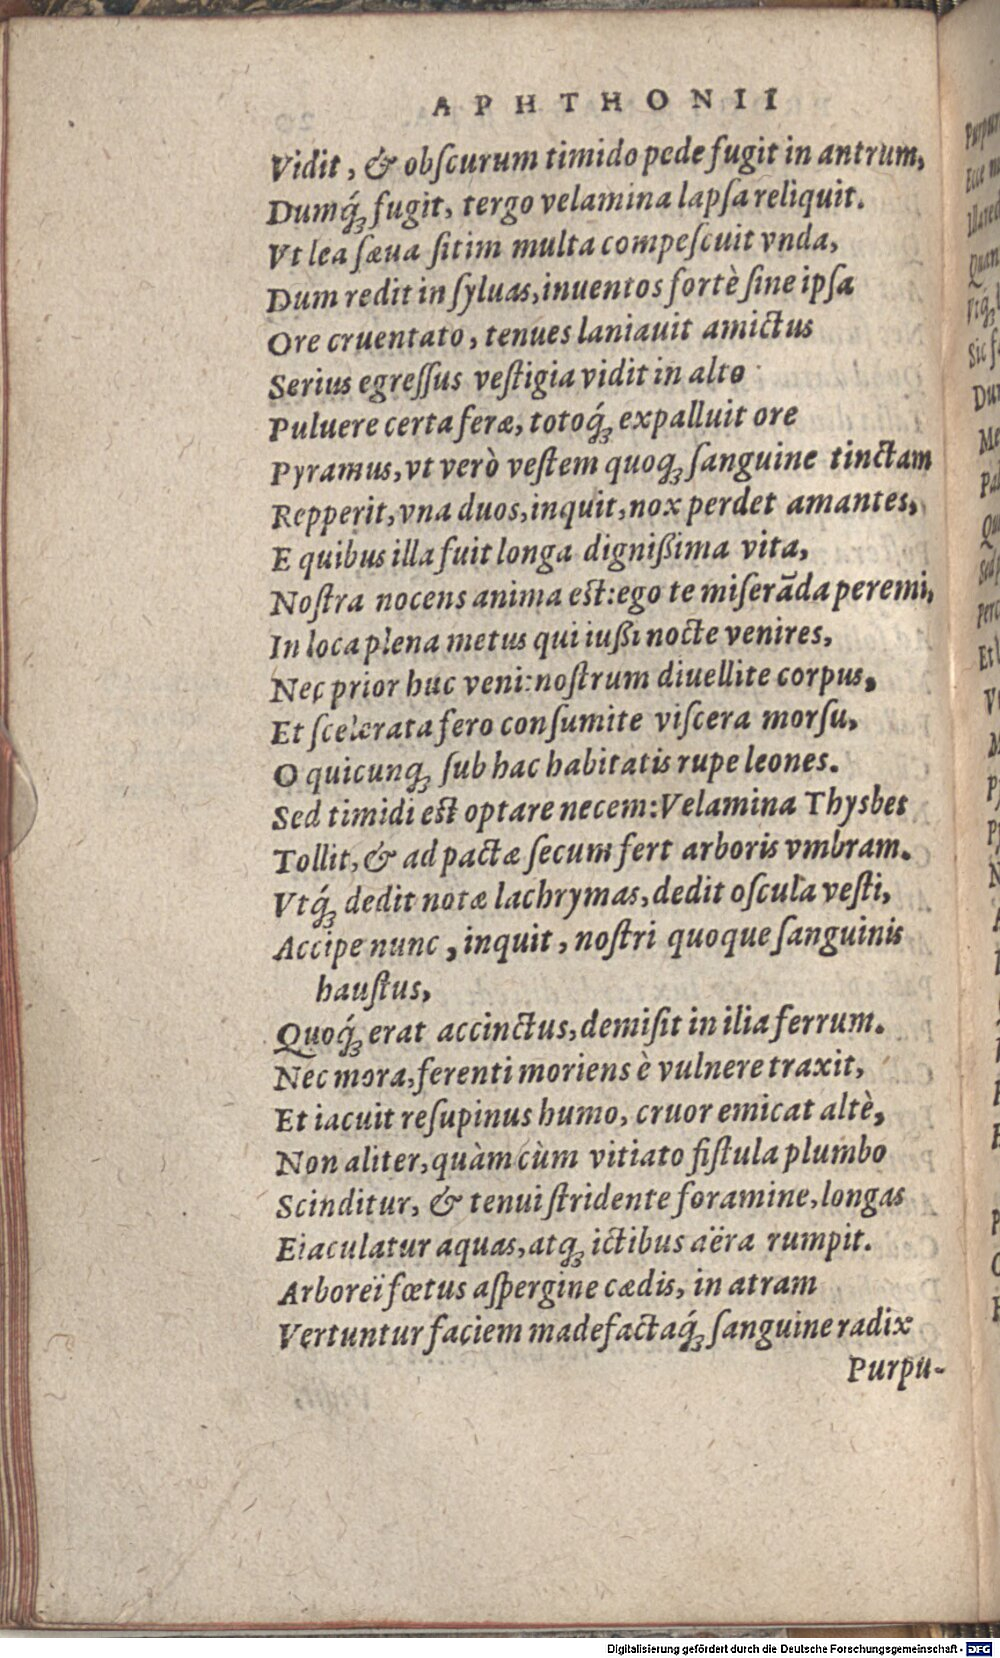 APHTHONII
Vidit, & obſcurum timido pede fugit in antrum,
Dumq́ꝫ fugit, tergo velamina lapſa reliquit.
Vt lea ſæua ſitim multa compeſcuit vnda,
Dum redit in ſyluas, inuentos fortè ſine ipſa
Ore cruentato, tenues laniauit amictus
Serius egreſſus veſtigia vidit in alto
Puluere certa feræ, totoq́ꝫ expalluit ore
Pyramus, vt verò veſtem quoqꝫ ſanguine tinctam
Repperit, vna duos, inquit, nox perdet amantes,
E quibus illa fuit longa digniſſima vita,
Noſtra nocens anima eſt: ego te miſerāda peremi,
In loca plena metus qui iuſſi nocte venires,
Nec prior huc veni: noſtrum diuellite corpus,
Et ſcelerata fero conſumite viſcera morſu,
O quicunqꝫ ſub hac habitatis rupe leones.
Sed timidi eſt optare necem: Velamina Thysbes
Tollit, & ad pactæ ſecum fert arboris vmbram.
Vtq́ꝫ dedit notæ lachrymas, dedit oſcula veſti,
Accipe nunc, inquit, noſtri quoque ſanguinis
hauſtus,
Quoq́ꝫ erat accinctus, demiſit in ilia ferrum.
Nec mora, ferenti moriens è vulnere traxit,
Et iacuit reſupinus humo, cruor emicat altè,
Non aliter, quàm cùm vitiato fiſtula plumbo
Scinditur, & tenui ſtridente foramine, longas
Eiaculatur aquas, atqꝫ ictibus aëra rumpit.
Arborei fœtus aſpergine cædis, in atram
Vertuntur faciem madefactaq́ꝫ ſanguine radix
Purpu-
Digitalisierung gefördert durch die Deutsche Forschungsgemeinschaft - DFG